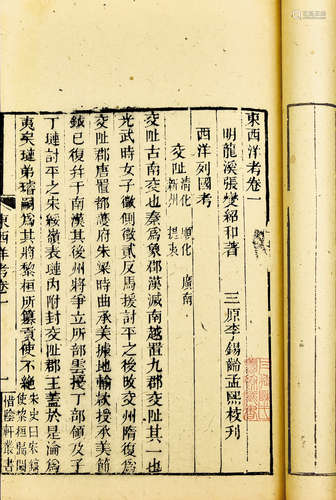 東西洋考卷一
明龍溪張燮紹和著　三原李錫齡孟熙校刊
西洋列國考
交阯
清化　順化　廣南
新州　提夷
交阯古南交也秦為象郡漢滅南越置九郡交阯其一也
光武時女子徵側徵貳反馬援討平之後改交州隋復為
交阯郡唐置都護府朱梁時曲承美據地輸款授承美節
鉞已復幷于南漢其後州將爭立所部雲擾丁部領及子
丁璉討平之宋綏嶺表璉內附封交阯郡王蓋於是淪為
夷矣璉弟璿嗣為其將黎桓所簒貢使不絕
宋史曰宋鎬
使黎桓歸闕
東西洋考卷一
一
惜陰軒叢書